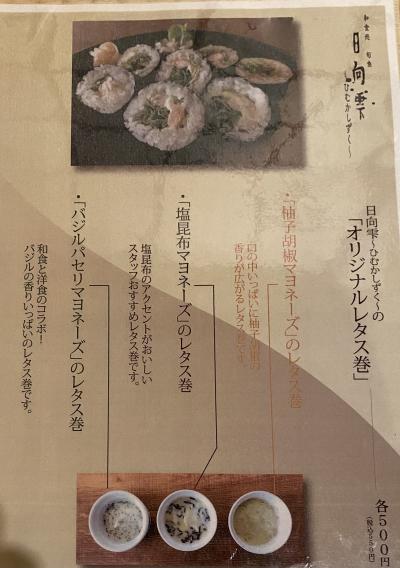 和食処 旬魚
日向雫
~ひむかしずく~
日向雫~ひむかしずく~の
「オリジナルレタス巻」
各500円
(税込550円)
・「柚子胡椒マヨネーズ」のレタス巻
口の中いっぱいに柚子胡椒の
香りが広がるレタス巻です。
・「塩昆布マヨネーズ」のレタス巻
塩昆布のアクセントがおいしい
スタッフおすすめレタス巻です。
・「バジルパセリマヨネーズ」のレタス巻
和食と洋食のコラボ!
バジルの香りいっぱいのレタス巻です。